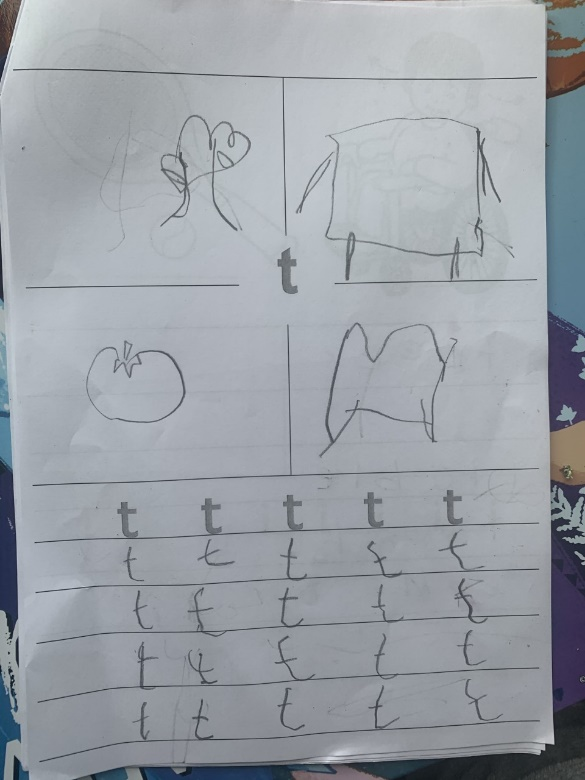 t
t t t t t
t t t t t
t t t t t
t t t t t
t t t t t